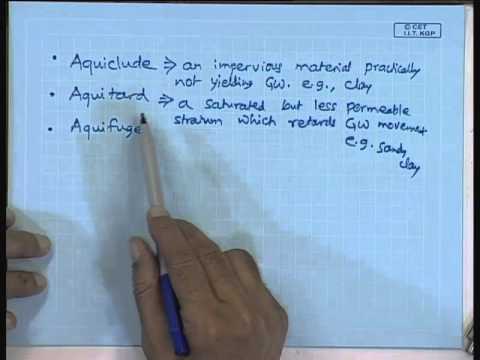 © CET
I.I.T. KGP
• Aquiclude ⇒ an impervious material practically
not yielding GW. e.g., clay
• Aquitard ⇒ a saturated but less permeable
stratum which retards GW movement
• Aquifuge
e.g. sandy
clay